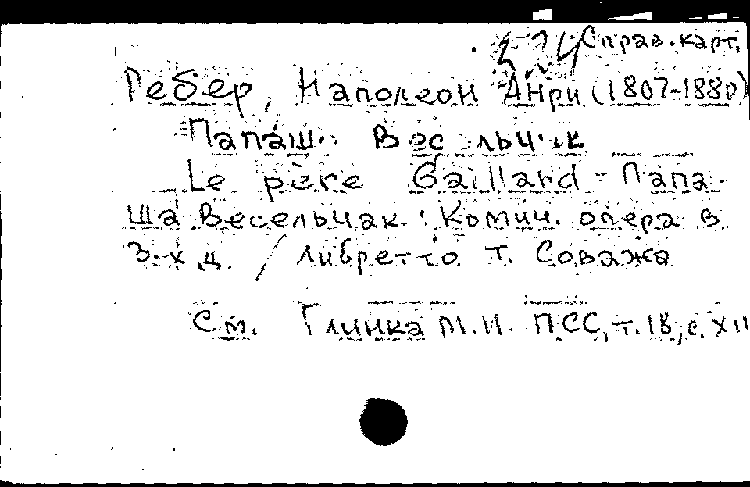 Справ. карт.
Ребер, Наполеон Анри (1807-1880)
Папаш Весельчак
Le père Gaillard - Папа-
ша Весельчак : Комич. опера в
3-х д. / Либретто Т. Соважа
См. Глинка М.И. ПСС, т. 18, с. XII